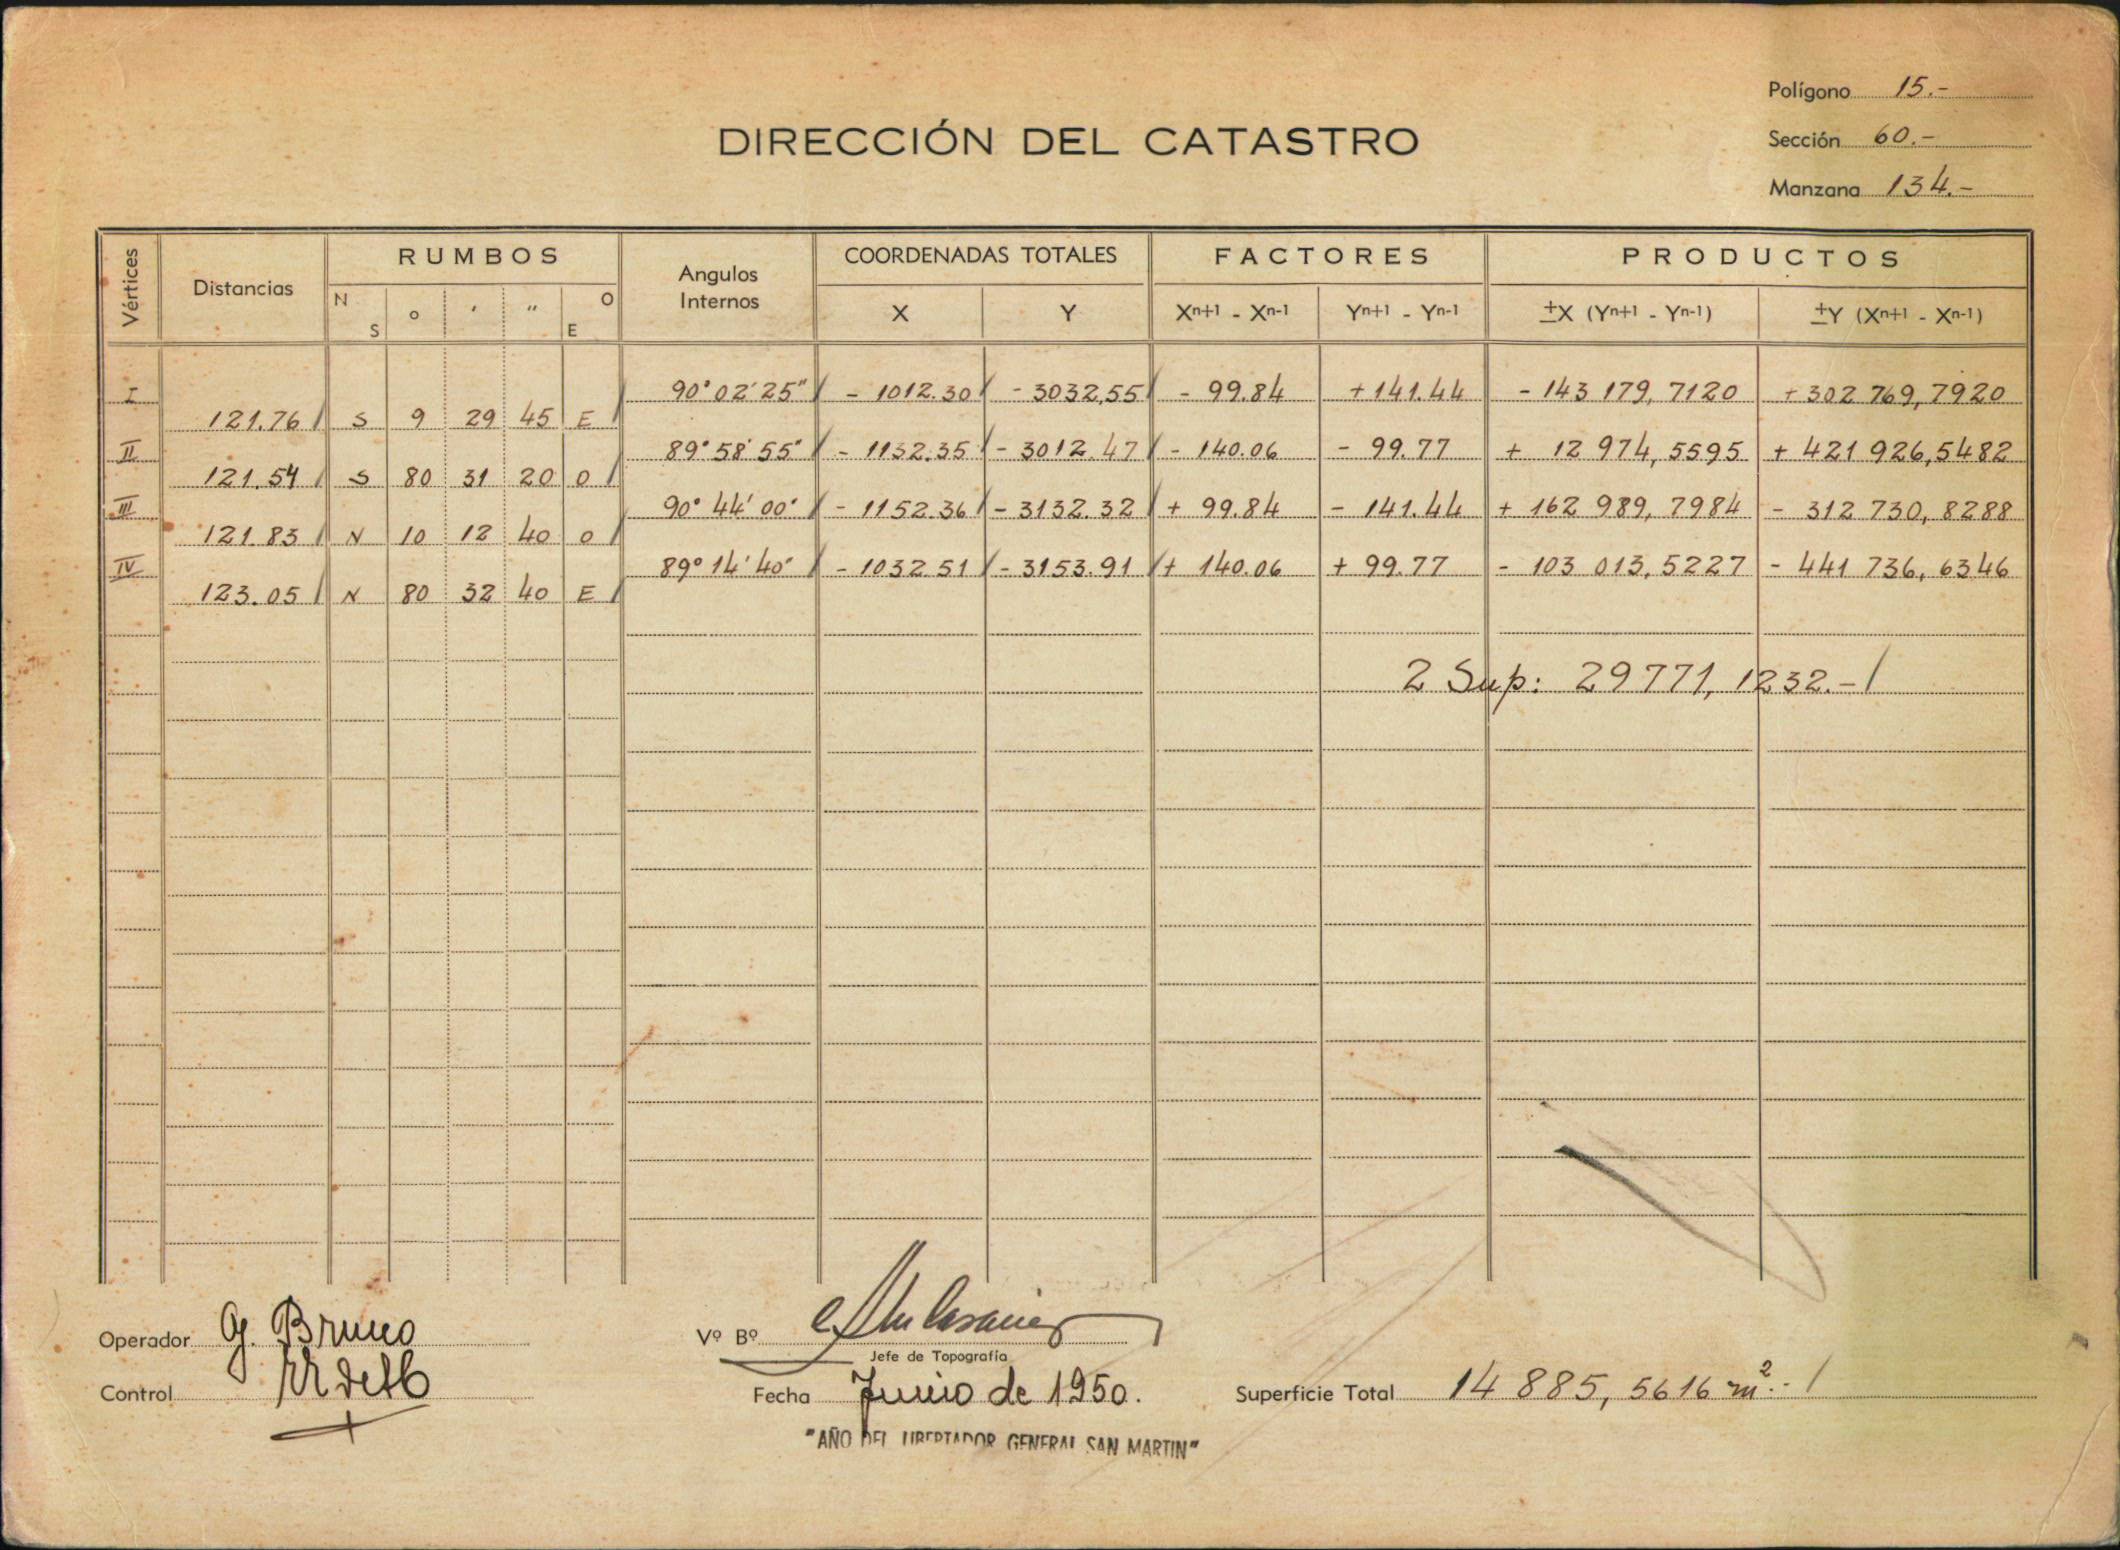 Polígono 15.-
DIRECCIÓN DEL CATASTRO
Sección 60.-
Manzana 134.-
Vértices Distancias RUMBOS Angulos Internos COORDENADAS TOTALES FACTORES PRODUCTOS
N S o ´ " O E X Y Xn+1 - Xn-1 Yn+1 - Yn-1 ±X (Yn+1 - Yn-1) ±Y (Xn+1 - Xn-1)
I 90° 02' 25" - 1012.30 - 3032,55 - 99.84 + 141.44 - 143 179, 7120 + 302 769, 7920
121.76 S 9 29 45 E
II 89° 58' 55" - 1132.35 - 3012.47 - 140.06 - 99.77 + 12 974, 5595 + 421 926, 5482
121.54 S 80 31 20 O
III 90° 44' 00" - 1152.36 - 3132.32 + 99.84 - 141.44 + 162 989, 7984 - 312 730, 8288
121.83 N 10 12 40 O
IV 89° 14' 40" - 1032.51 - 3153.91 + 140.06 + 99.77 - 103 013, 5227 - 441 736, 6346
123.05 N 80 32 40 E
2 Sup: 29771, 1232.-
Operador G. Bruno
Vº Bº
Jefe de Topografía
Control
Fecha Junio de 1950.
Superficie Total 14 885, 5616 m².-
"AÑO DEL LIBERTADOR GENERAL SAN MARTIN"